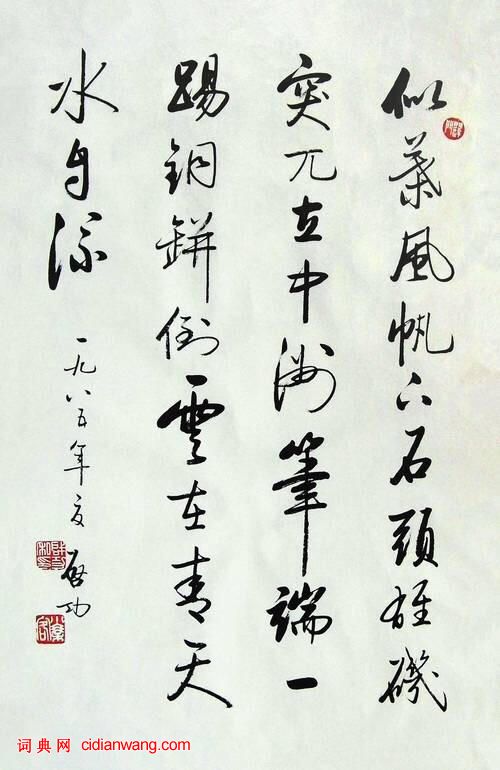 似葉風帆下石頭雄磯
突兀立中洲筆端一
踢銅缾倒雲在青天
水自流
一九八五年夏 啓功
词典网 cidianwang.com